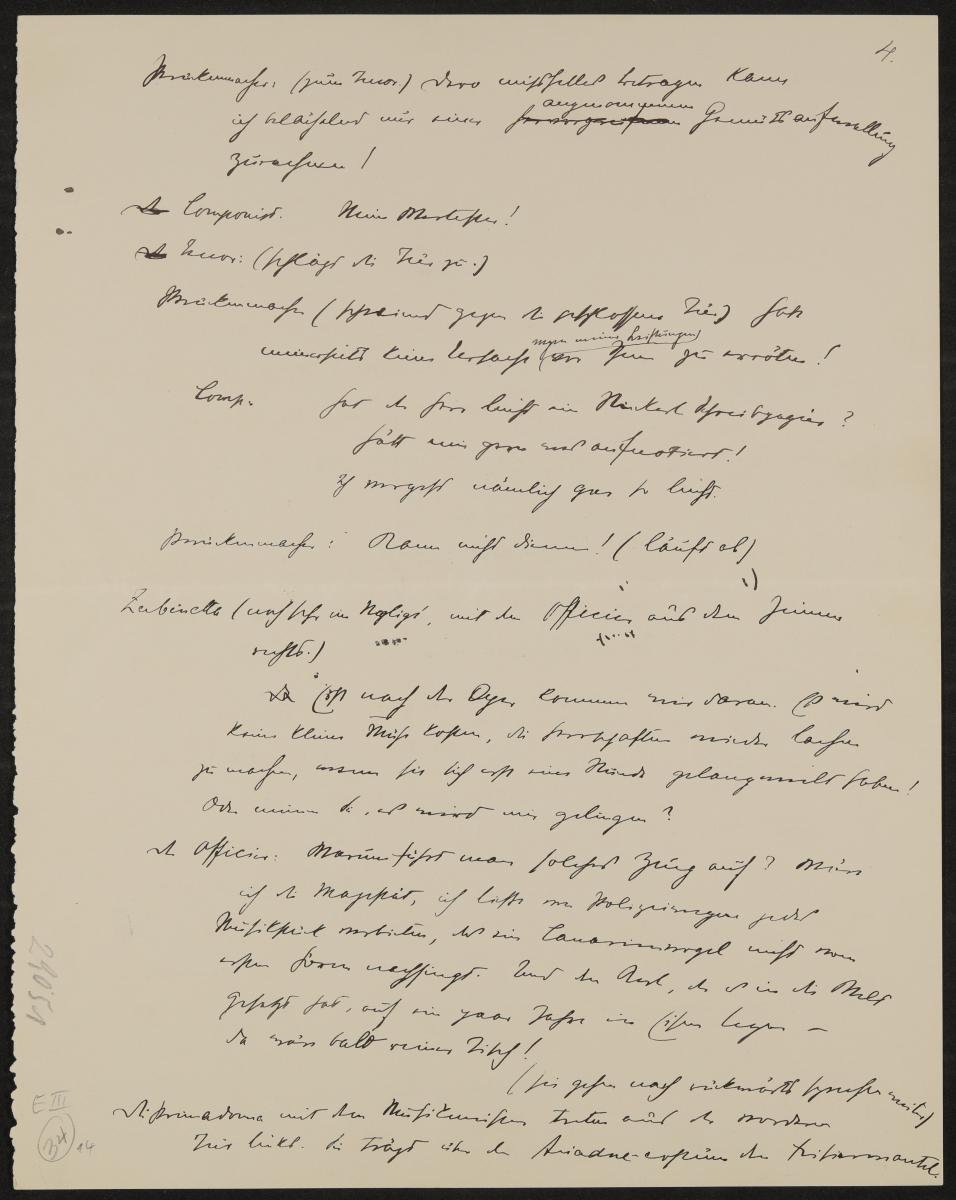 4.
Perückenmacher: (zum Tenor.) Dero mißhelles betragen kann
angenommenen
ich belächelnd nur einer Gemütsaufwallung
zurechnen!
Componist. Mein Musikus!
Tenor: (schlägt die Tür zu.)
Perückenmacher (schreiend gegen die geschlossene Tür) Habe
wegen meiner Leistungen
meinerseits keine Ursache vor Ihnen zu erröten!
Comp. Hat der Herr leicht ein Stückerl Schreibpapier?
hätt mir gern was aufnotiert!
Ich vergeß nämlich gar so leicht.
Perückenmacher: Kann nicht dienen! (läuft ab)
Zerbinetta (noch sehr im Négligé, mit dem Officier aus dem Zimmer
rechts.)
Erst nach der Oper kommen wir daran. Es wird
keine kleine Mühe kosten, die Herrschaften wieder lachen
zu machen, wenn sie sich erst eine Stunde gelangweilt haben!
Oder meinen Sie, es wird mir gelingen?
Der Officier: Warum führt man solches Zeug auf? Wäre
ich die Majestät, ich ließe von Polizeiwegen jedes
Musikstück verbieten, das ein Canarienvogel nicht vom
ersten Hören nachsingt. Und den Kerl, der es in die Welt
gesetzt hat, auf ein paar Jahre in Eisen legen –
da wäre bald reiner Tisch!
(sie gehen nach rückwärts sprechen weiter)
Die Primadonna mit dem Musiklehrer treten aus der vorderen
Tür links. Sie trägt über dem Ariadne-costüm den Frisiermantel.
29051
E III
14